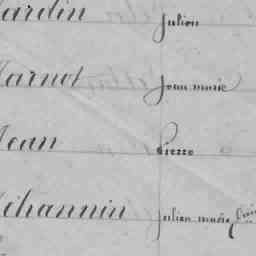 Jardin Julien
Jarnot Jean marie
Jean Pierre
Jéhannin Julien marie